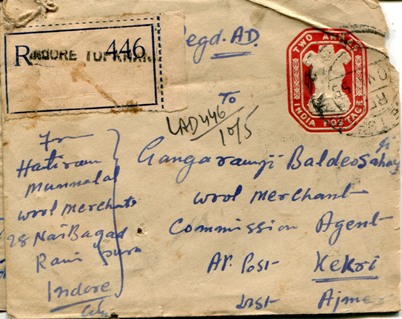 R INDORE TUKKHANA 446
Regd. AD.
TWO ANNAS
INDIA POSTAGE
To
LAD 446
10/5
Gangaramji Baldeosahay
Wool Merchant
Commission Agent
At. Post Kekri
Dist Ajmer
Fr
Hatiram
Munnalal
wool merchants
28 Nai Bagad
Rani pura
Indore
City